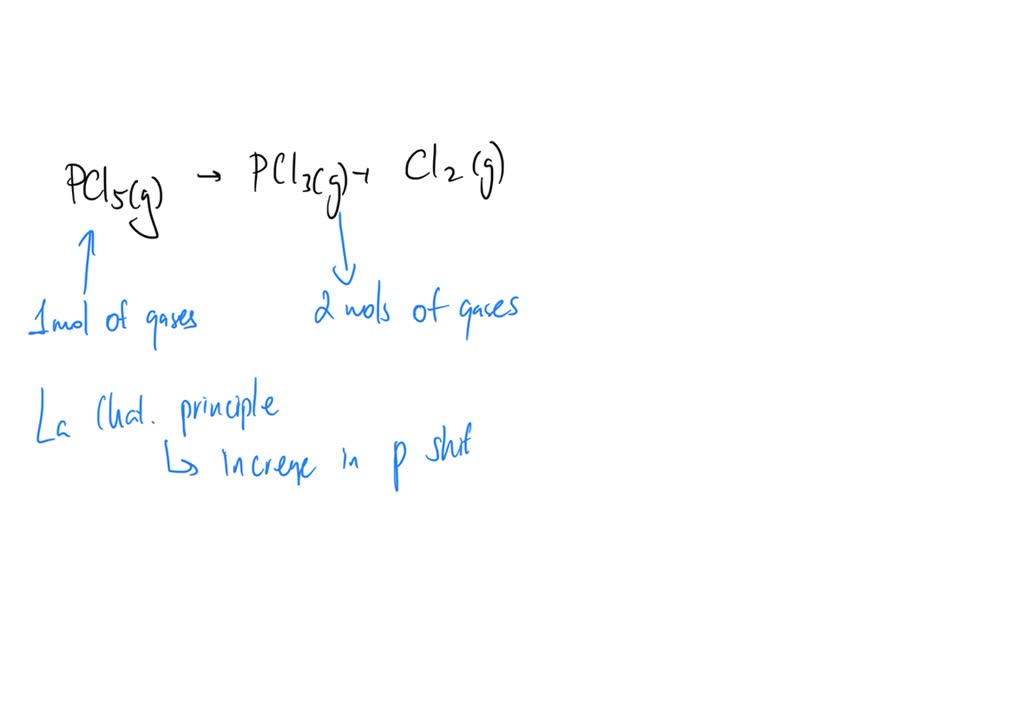 PCl5(g) → PCl3(g) + Cl2(g)
1 mol of gases 2 mols of gases
La Chat. principle
↳ increse in p shif